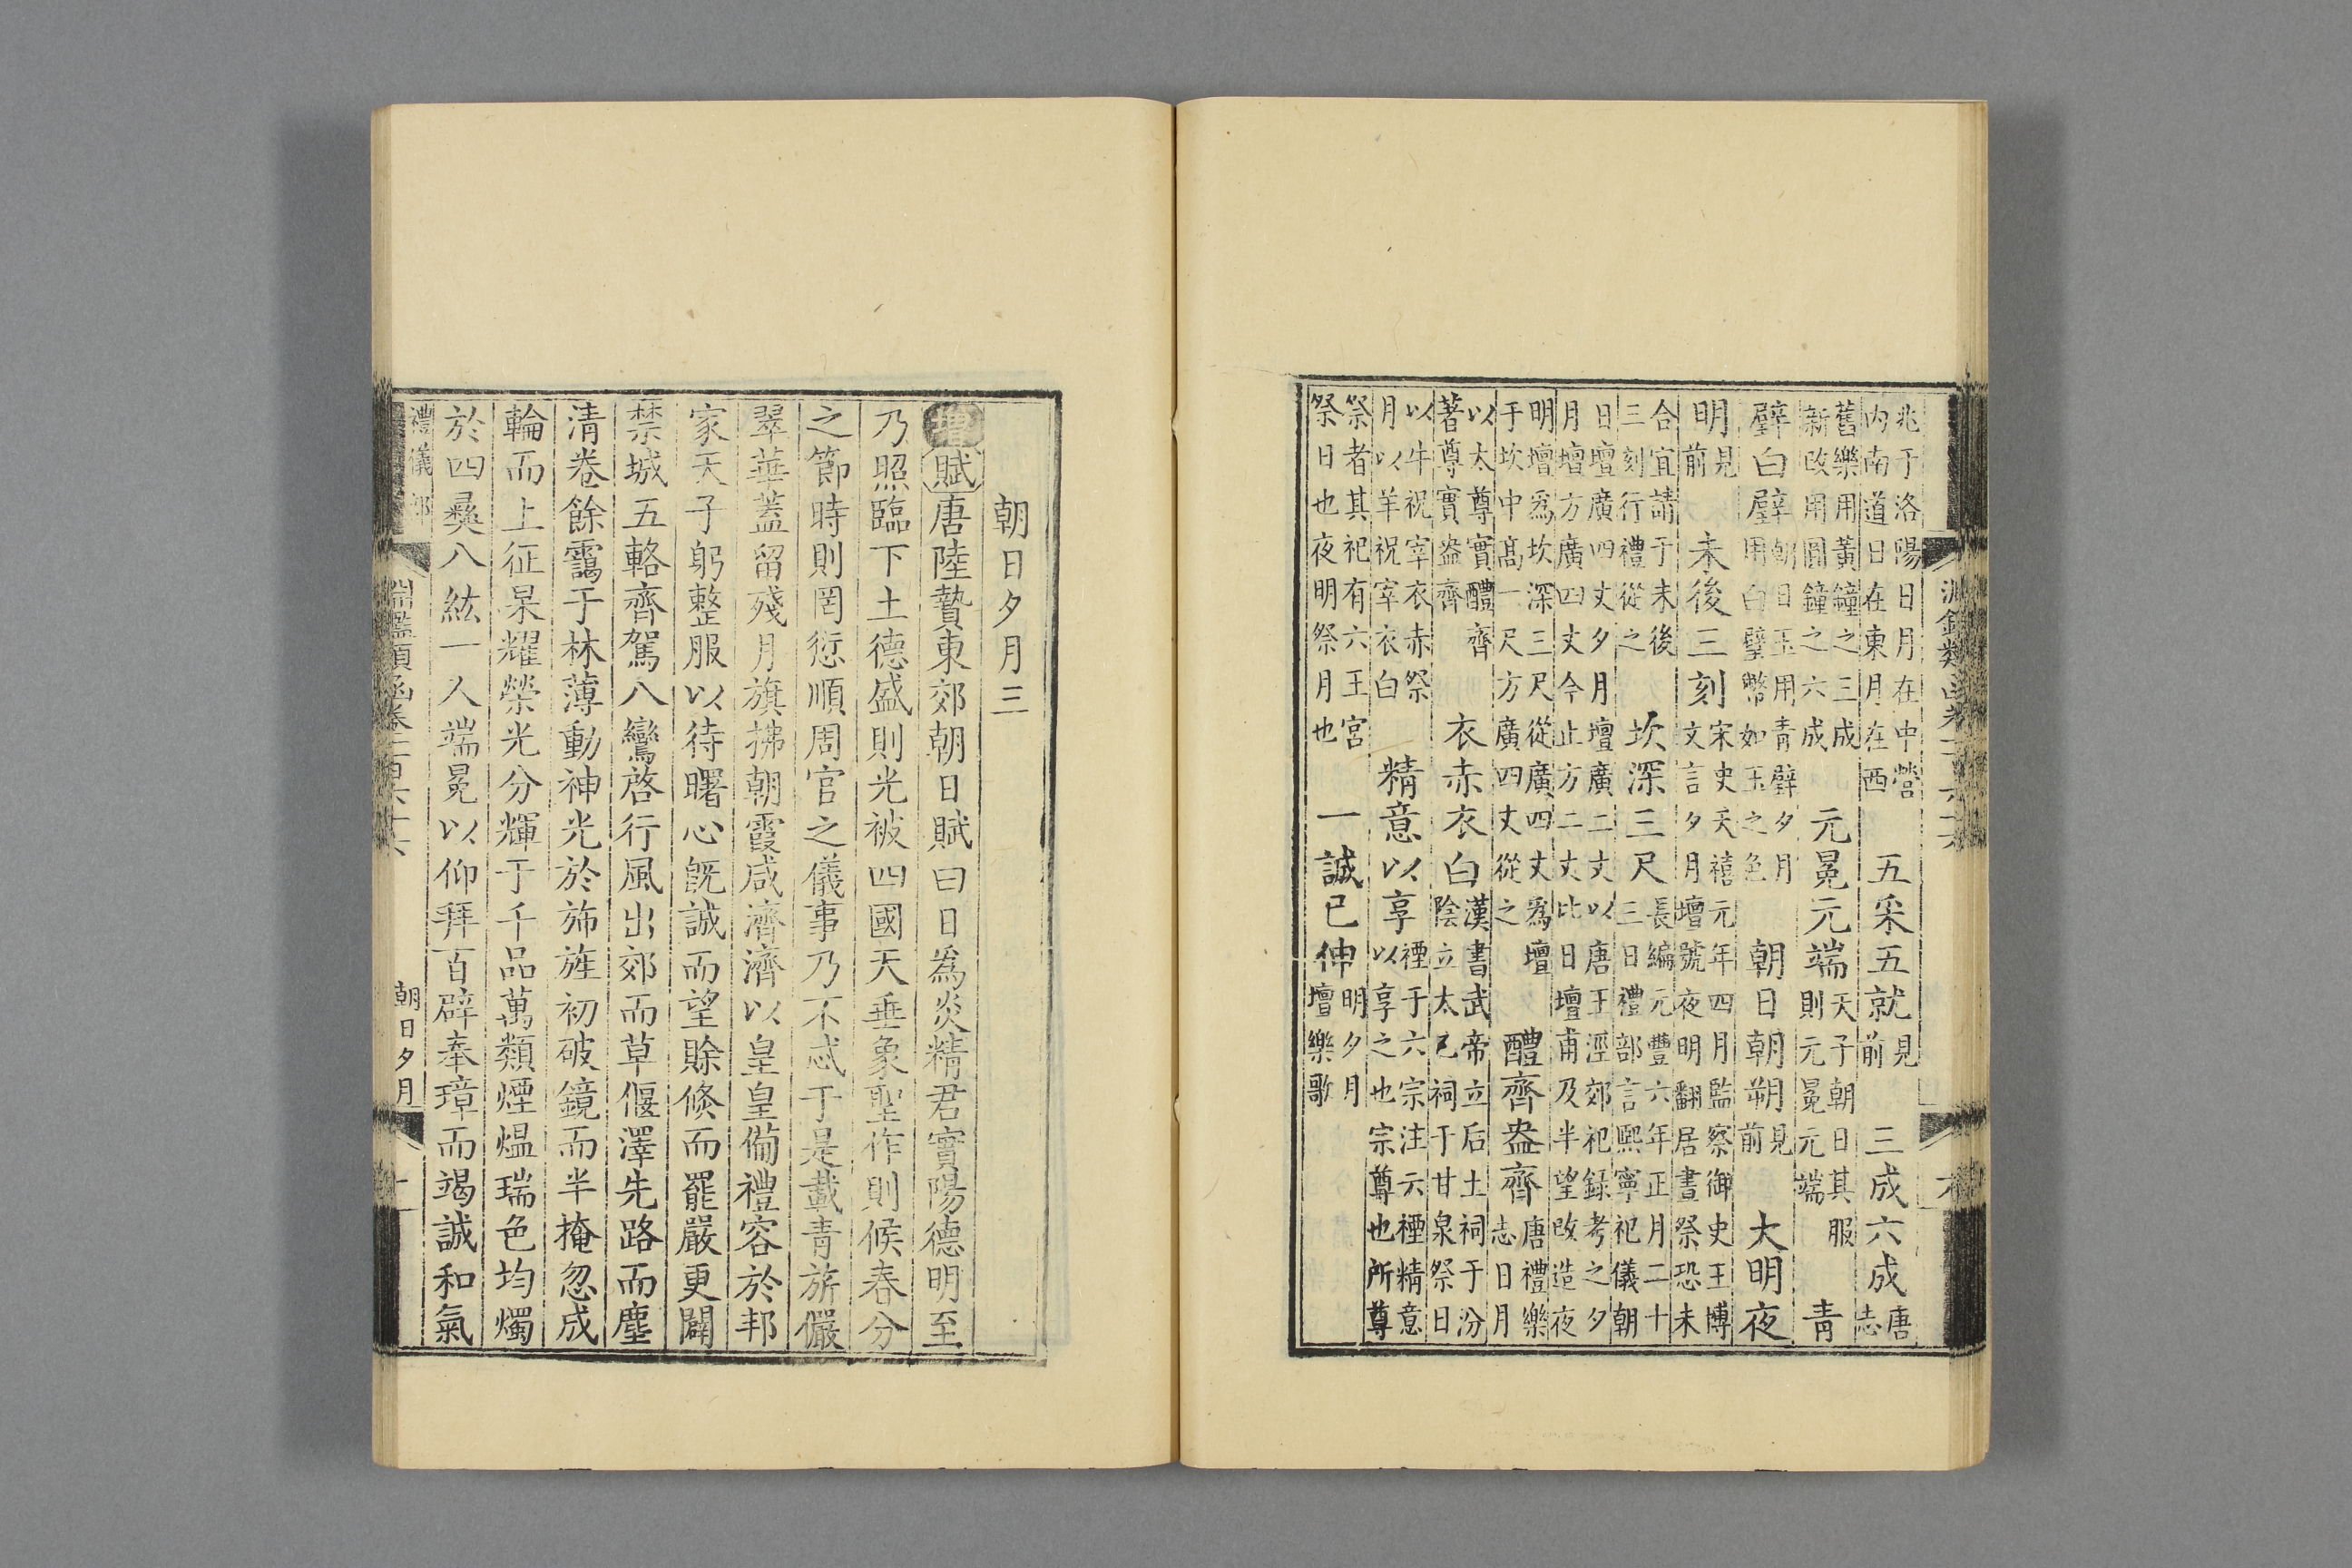 淵鑑類函卷一百六十六
兆于洛陽日月在中營内南道日在東月在西 五采五就見前 三成六成唐志
舊樂用黃鐘之三成新改用圜鐘之六成 元冕元端天子朝日其服則元冕元端 青
璧白璧朝日玉用青璧夕月用白璧幣如玉之色 朝日朝朔見前 大明夜
明見前 未後三刻宋史天禧元年四月監察御史王博文言夕月壇號夜明翻居晝祭恐未
合宜請于未後三刻行禮從之 坎深三尺長編元豐六年正月二十三日禮部言熙寧祀儀朝
日壇廣四丈夕月壇廣二丈以唐王涇郊祀録考之夕月壇方廣四丈今止方二丈比日壇甫及半望改造夜
明壇爲坎深三尺從廣四丈爲壇于坎中髙一尺方廣四丈從之 醴齊盎齊唐禮樂志日月
以太尊實醴齊著尊實盎齊 衣赤衣白漢書武帝立后土祠于汾陰立太乙祠于甘泉祭日
以牛祝宰衣赤祭月以羊祝宰衣白 精意以享禋于六宗注云禋精意以享之也宗尊也所尊
祭者其祀有六王宮祭日也夜明祭月也 一誠已伸明夕月壇樂歌
朝日夕月三
增賦唐陸贄東郊朝日賦曰日爲炎精君實陽德明至
乃照臨下土德盛則光被四國天垂象聖作則候春分
之節時則罔愆順周官之儀事乃不忒于是載青旂儼
翠華蓋留殘月旗拂朝霞咸濟濟以皇皇備禮容於邦
家天子躬整服以待曙心旣誠而望賒倐而罷嚴更闢
禁城五輅齊駕八鸞啓行風出郊而草偃澤先路而塵
清卷餘靄于林薄動神光於斾旌初破鏡而半掩忽成
輪而上征杲耀榮光分輝于千品萬類煙煴瑞色均燭
於四彝八紘一人端冕以仰拜百辟奉璋而竭誠和氣
禮儀部 淵鑑類函卷一百六十六 朝日夕月